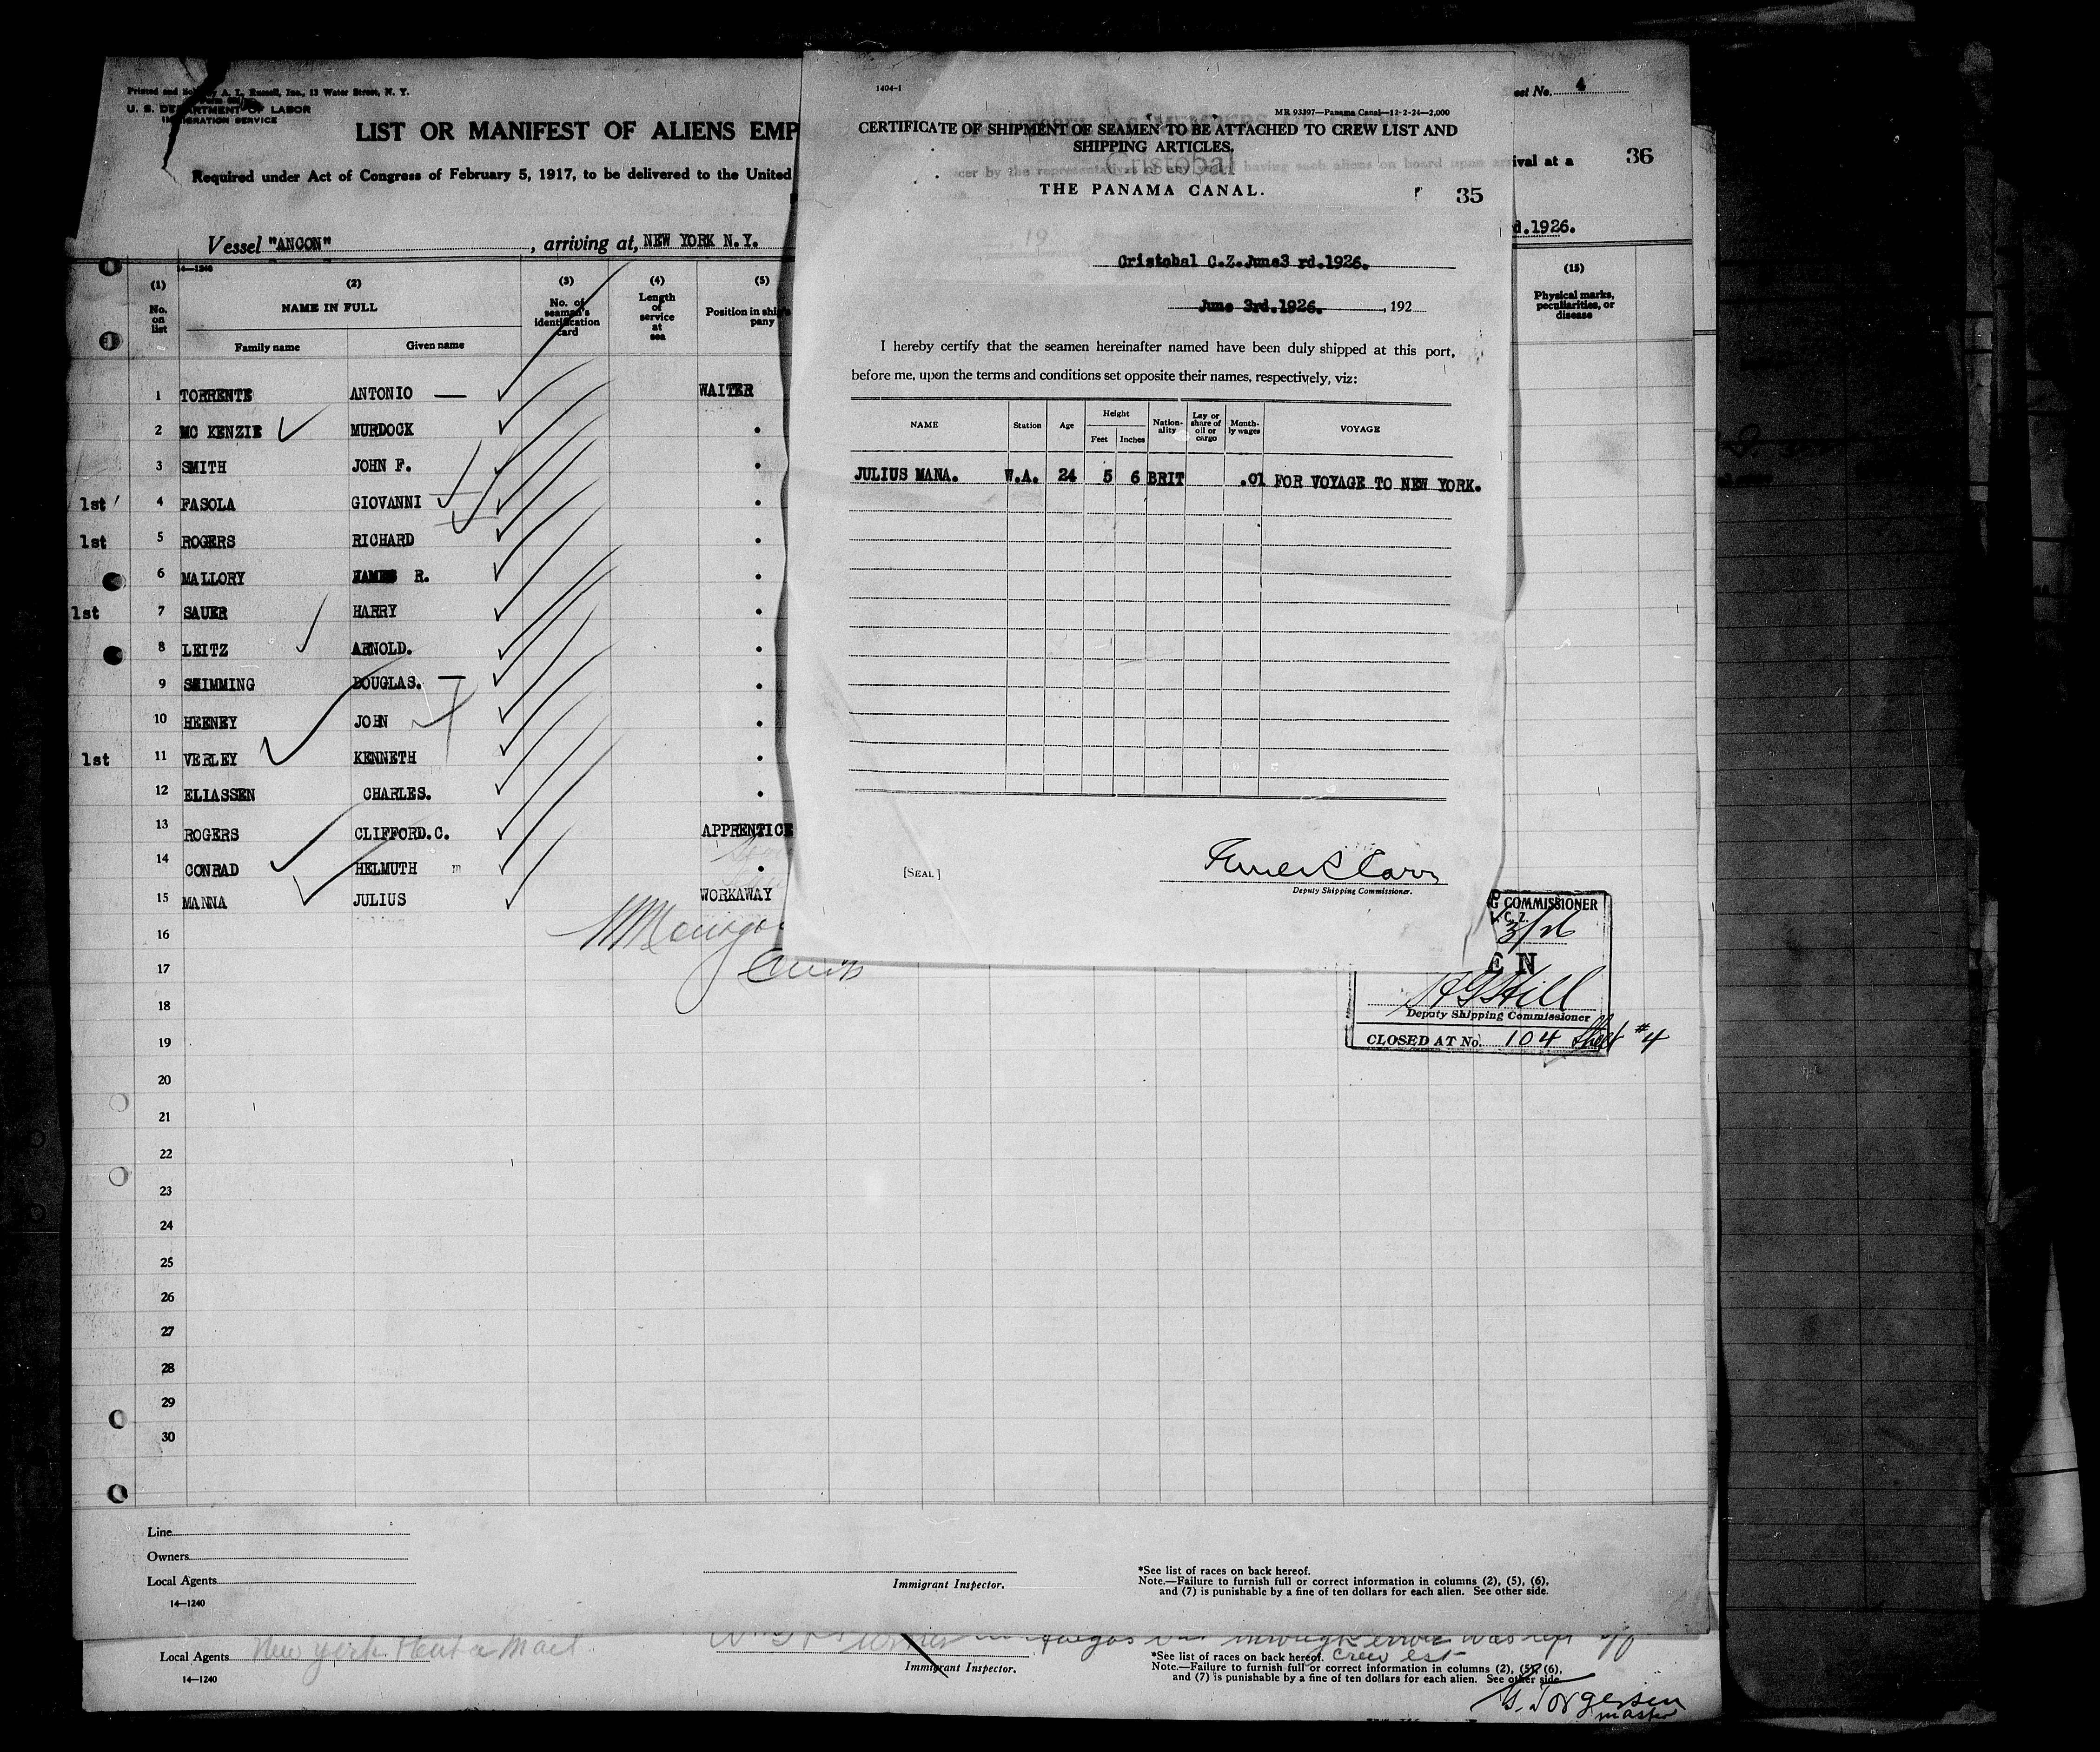 Printed and Sold by A. L. Russell, Inc., 13 Water Street, N. Y.
U. S. DEPARTMENT OF LABOR
IMMIGRATION SERVICE
LIST OR MANIFEST OF ALIENS EMP
Required under Act of Congress of February 5, 1917, to be delivered to the United
Vessel "ANCON" , arriving at, NEW YORK N.Y.
14—1240
(1) No. on list
(2) NAME IN FULL
Family name Given name
(3) No. of seaman's identification card
(4) Length of service at sea
(5) Position in ship's pany
1 TORRENTE ANTONIO — WAITER
2 MC KENZIE MURDOCK "
3 SMITH JOHN F. "
1st 4 FASOLA GIOVANNI "
1st 5 ROGERS RICHARD "
6 MALLORY R. "
1st 7 SAUER HARRY "
8 LEITZ ARNOLD. "
9 SHIMMING DOUGLAS. "
10 HEENEY JOHN "
1st 11 VERLEY KENNETH "
12 ELIASSEN CHARLES. "
13 ROGERS CLIFFORD.C. APPRENTICE
14 CONRAD HELMUTH "
15 MANNA JULIUS WORKAWAY
16
17
18
19
20
21
22
23
24
25
26
27
28
29
30
Line
Owners
Local Agents
14—1240
Immigrant Inspector.
*See list of races on back hereof.
Note.—Failure to furnish full or correct information in columns (2), (5), (6),
and (7) is punishable by a fine of ten dollars for each alien. See other side.
1404-1
MR 93397—Panama Canal—12-2-24—2,000
CERTIFICATE OF SHIPMENT OF SEAMEN TO BE ATTACHED TO CREW LIST AND
SHIPPING ARTICLES.
Cristobal
THE PANAMA CANAL.
35
Cristobal C.Z.June3 rd.1926.
June 3rd.1926. , 192
I hereby certify that the seamen hereinafter named have been duly shipped at this port,
before me, upon the terms and conditions set opposite their names, respectively, viz:
NAME Station Age Height Feet Inches Nationality Lay or share of oil or cargo Monthly wages VOYAGE
JULIUS MANA. W.A. 24 5 6 BRIT .01 FOR VOYAGE TO NEW YORK.
[SEAL]
Deputy Shipping Commissioner.
eet No. 4
ival at a
36
d.1926.
(15)
Physical marks, peculiarities, or disease
G COMMISSIONER
C. Z.
3/26
EN
Hill
Deputy Shipping Commissioner
CLOSED AT No. 104 Sheet #4
Local Agents New york
14—1240
Immigrant Inspector.
through error was left off
crew list
*See list of races on back hereof.
Note.—Failure to furnish full or correct information in columns (2), (5), (6),
and (7) is punishable by a fine of ten dollars for each alien. See other side.
G. Torgersen
master